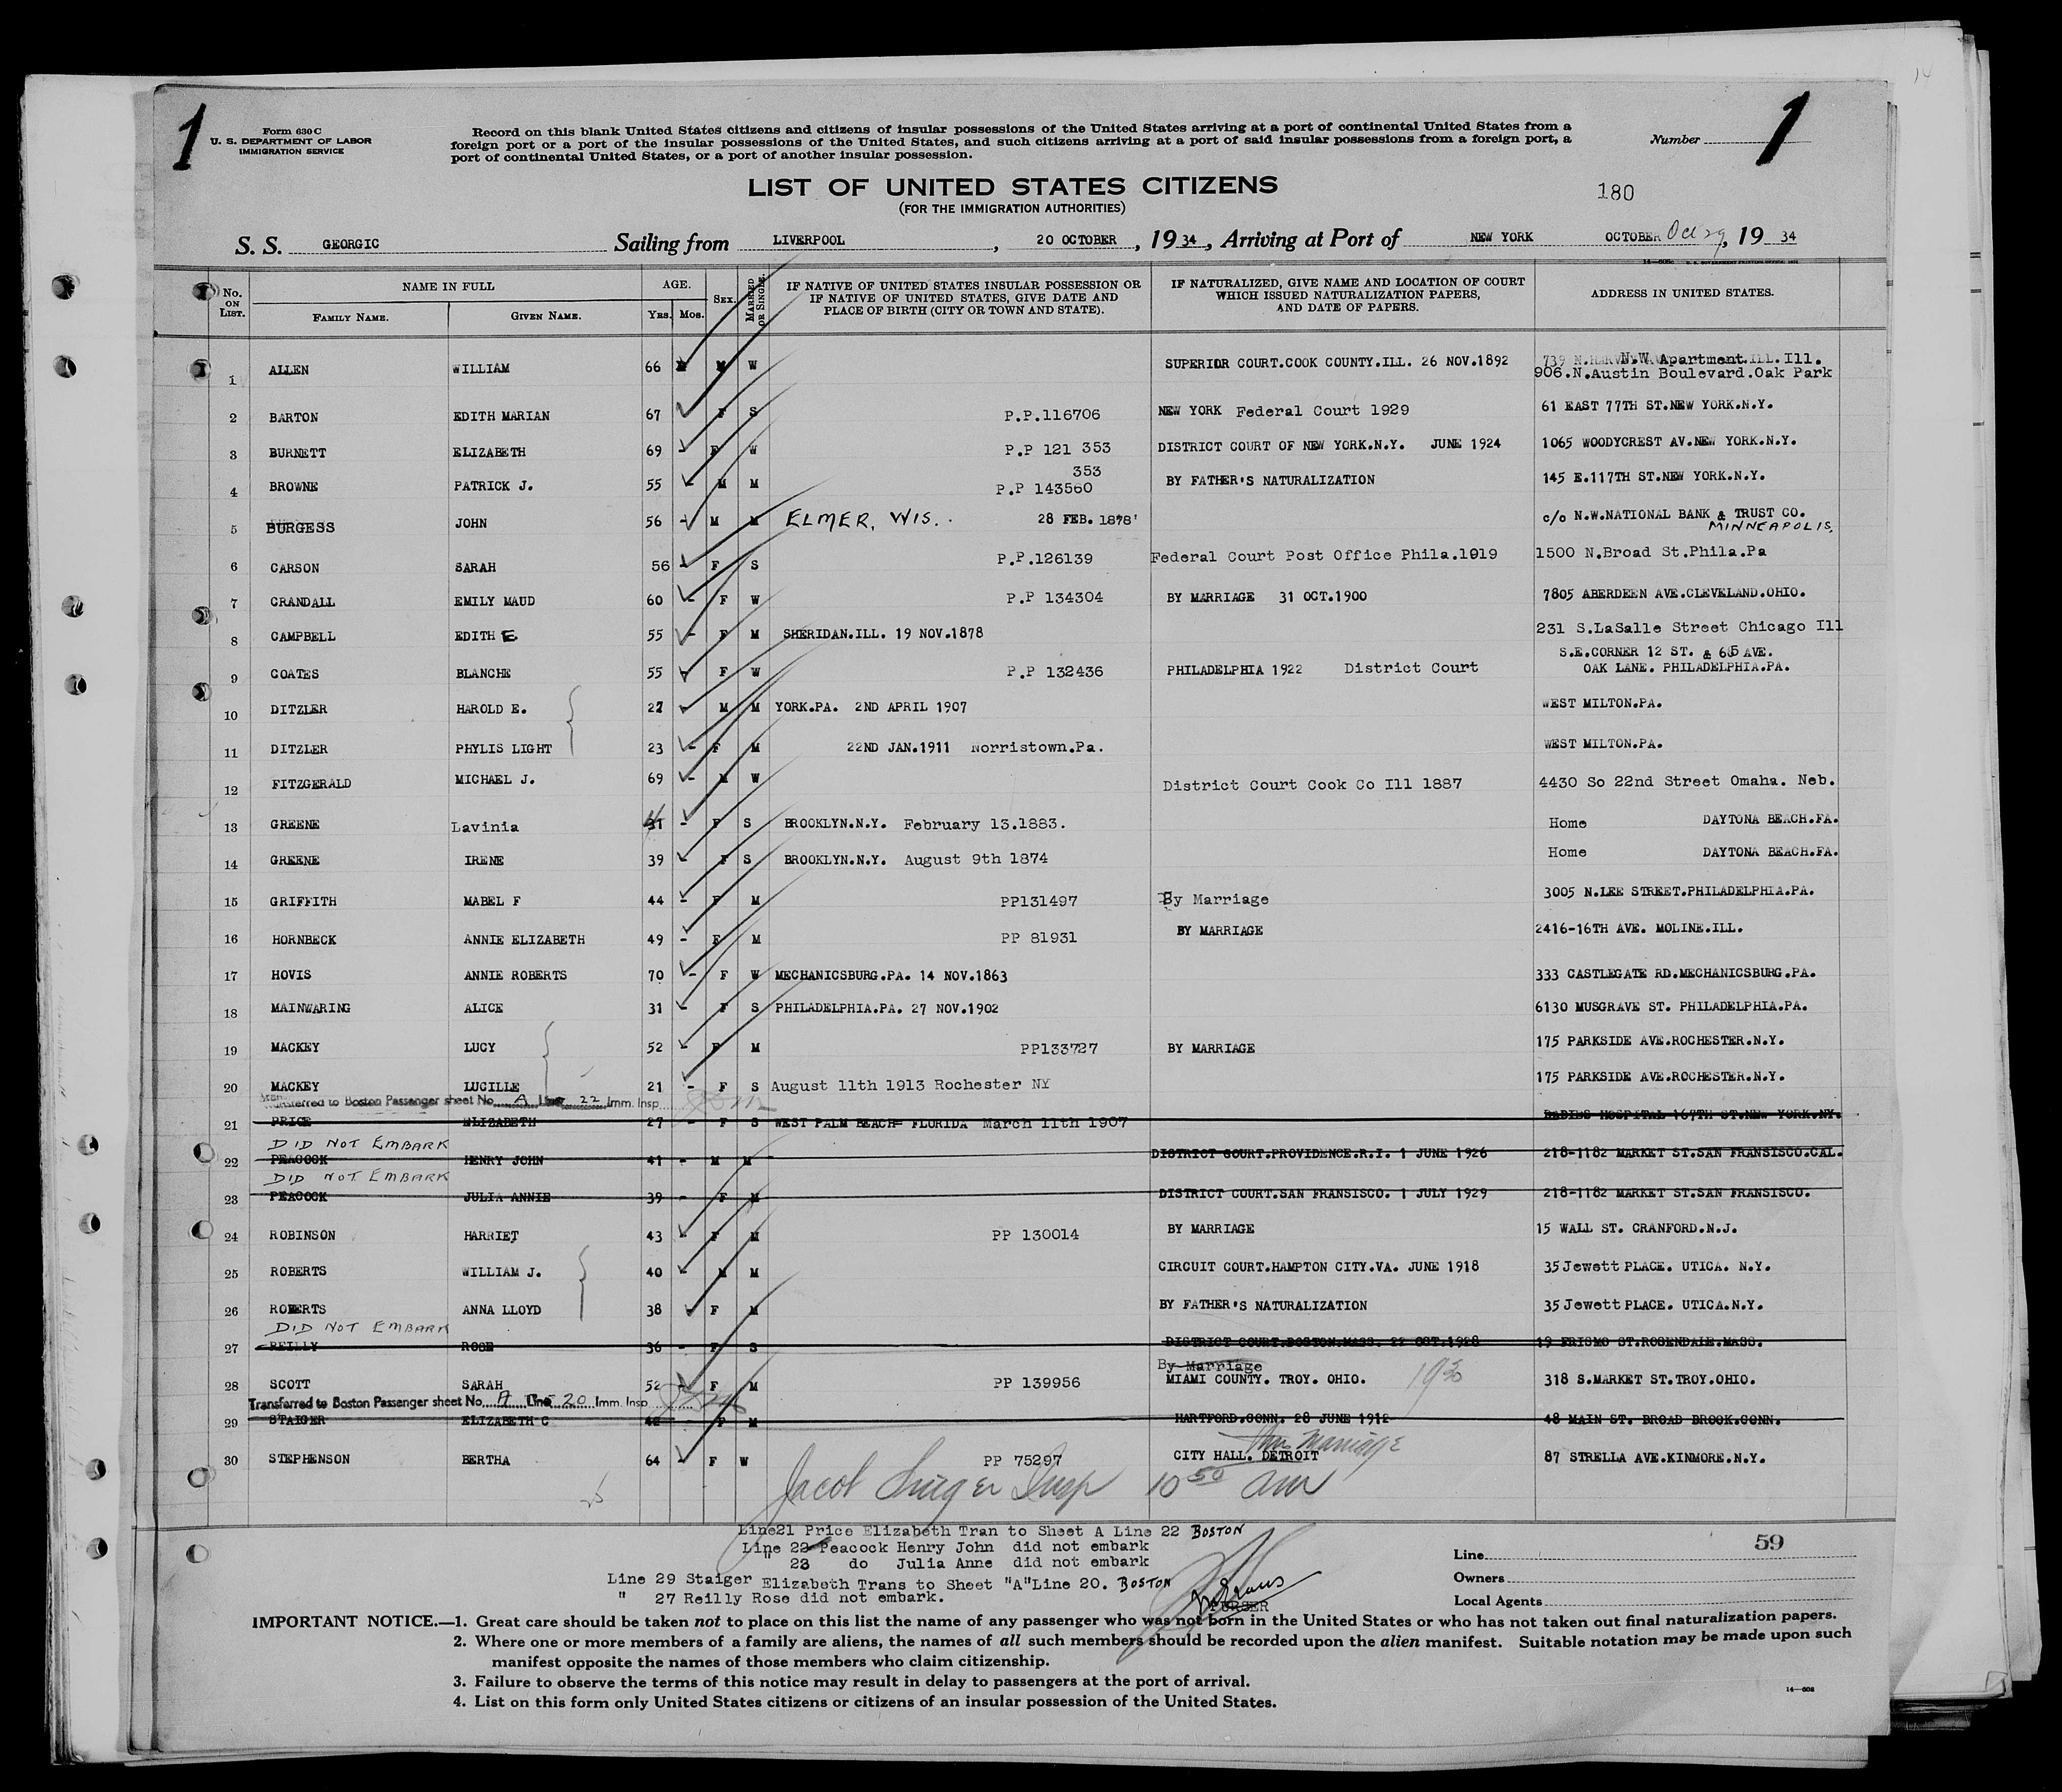 14
1
Form 630 C
U. S. DEPARTMENT OF LABOR
IMMIGRATION SERVICE
Record on this blank United States citizens and citizens of insular possessions of the United States arriving at a port of continental United States from a
foreign port or a port of the insular possessions of the United States, and such citizens arriving at a port of said insular possessions from a foreign port, a
port of continental United States, or a port of another insular possession.
Number 1
LIST OF UNITED STATES CITIZENS
(FOR THE IMMIGRATION AUTHORITIES)
180
S. S. GEORGIC Sailing from LIVERPOOL, 20 OCTOBER, 1934, Arriving at Port of NEW YORK OCTOBER Oct 29, 1934
No. ON LIST. NAME IN FULL FAMILY NAME. GIVEN NAME. AGE. YRS. MOS. SEX. MARRIED OR SINGLE. IF NATIVE OF UNITED STATES INSULAR POSSESSION OR IF NATIVE OF UNITED STATES, GIVE DATE AND PLACE OF BIRTH (CITY OR TOWN AND STATE). IF NATURALIZED, GIVE NAME AND LOCATION OF COURT WHICH ISSUED NATURALIZATION PAPERS, AND DATE OF PAPERS. ADDRESS IN UNITED STATES.
1 ALLEN WILLIAM 66 M W SUPERIOR COURT.COOK COUNTY.ILL. 26 NOV.1892 739 N.W Apartment Ill.
906.N.Austin Boulevard.Oak Park
2 BARTON EDITH MARIAN 67 F S P.P.116706 NEW YORK Federal Court 1929 61 EAST 77TH ST.NEW YORK.N.Y.
3 BURNETT ELIZABETH 69 F W P.P 121 353 DISTRICT COURT OF NEW YORK.N.Y. JUNE 1924 1065 WOODYCREST AV.NEW YORK.N.Y.
353
4 BROWNE PATRICK J. 55 - M M P.P 143560 BY FATHER'S NATURALIZATION 145 E.117TH ST.NEW YORK.N.Y.
5 BURGESS JOHN 56 - M M ELMER, WIS. 28 FEB. 1878 c/o N.W.NATIONAL BANK & TRUST CO.
MINNEAPOLIS.
6 CARSON SARAH 56 - F S P.P.126139 Federal Court Post Office Phila.1919 1500 N.Broad St.Phila.Pa
7 CRANDALL EMILY MAUD 60 - F W P.P 134304 BY MARRIAGE 31 OCT.1900 7805 ABERDEEN AVE.CLEVELAND.OHIO.
8 CAMPBELL EDITH E 55 - F M SHERIDAN.ILL. 19 NOV.1878 231 S.LaSalle Street Chicago Ill
9 COATES BLANCHE 55 - F W P.P 132436 PHILADELPHIA 1922 District Court S.E.CORNER 12 ST. & 65 AVE.
OAK LANE. PHILADELPHIA.PA.
10 DITZLER HAROLD E. 27 - M M YORK.PA. 2ND APRIL 1907 WEST MILTON.PA.
11 DITZLER PHYLIS LIGHT 23 - F M 22ND JAN.1911 Norristown.Pa. WEST MILTON.PA.
12 FITZGERALD MICHAEL J. 69 - M W District Court Cook Co Ill 1887 4430 So 22nd Street Omaha. Neb.
13 GREENE Lavinia - F S BROOKLYN.N.Y. February 13.1883. Home DAYTONA BEACH.FA.
14 GREENE IRENE 39 - F S BROOKLYN.N.Y. August 9th 1874 Home DAYTONA BEACH.FA.
15 GRIFFITH MABEL F 44 - F M PP131497 By Marriage 3005 N.LEE STREET.PHILADELPHIA.PA.
16 HORNBECK ANNIE ELIZABETH 49 - F M PP 81931 BY MARRIAGE 2416-16TH AVE. MOLINE.ILL.
17 HOVIS ANNIE ROBERTS 70 - F W MECHANICSBURG.PA. 14 NOV.1863 333 CASTLEGATE RD.MECHANICSBURG.PA.
18 MAINWARING ALICE 31 - F S PHILADELPHIA.PA. 27 NOV.1902 6130 MUSGRAVE ST. PHILADELPHIA.PA.
19 MACKEY LUCY 52 - F M PP133727 BY MARRIAGE 175 PARKSIDE AVE.ROCHESTER.N.Y.
20 MACKEY LUCILLE 21 - F S August 11th 1913 Rochester NY 175 PARKSIDE AVE.ROCHESTER.N.Y.
Transferred to Boston Passenger sheet No. A Line 22 Imm. Insp
21 PRICE ELIZABETH 27 - F S WEST PALM BEACH FLORIDA March 11th 1907 BABIES HOSPITAL 167TH ST.NEW YORK.NY.
DID NOT EMBARK
22 PEACOCK HENRY JOHN 41 - M M DISTRICT COURT.PROVIDENCE.R.I. 1 JUNE 1926 218-1182 MARKET ST.SAN FRANSISCO.CAL.
DID NOT EMBARK
23 PEACOCK JULIA ANNIE 39 - F M DISTRICT COURT.SAN FRANSISCO. 1 JULY 1929 218-1182 MARKET ST.SAN FRANSISCO.
24 ROBINSON HARRIET 43 - F M PP 130014 BY MARRIAGE 15 WALL ST. CRANFORD.N.J.
25 ROBERTS WILLIAM J. 40 - M M CIRCUIT COURT.HAMPTON CITY.VA. JUNE 1918 35 Jewett PLACE. UTICA. N.Y.
26 ROBERTS ANNA LLOYD 38 - F M BY FATHER'S NATURALIZATION 35 Jewett PLACE. UTICA.N.Y.
DID NOT EMBARK
27 REILLY ROSE 36 - F S DISTRICT COURT.BOSTON.MASS. 22 OCT.1928 19 FRISMO ST.ROSENDALE.MASS.
By Marriage
28 SCOTT SARAH 52 - F M PP 139956 MIAMI COUNTY. TROY. OHIO. 318 S.MARKET ST.TROY.OHIO.
Transferred to Boston Passenger sheet No. A Line 20 Imm. Insp
29 STAIGER ELIZABETH C F M HARTFORD.CONN. 28 JUNE 1912 48 MAIN ST. BROAD BROOK.CONN.
thru Marriage
30 STEPHENSON BERTHA 64 - F W PP 75297 CITY HALL. DETROIT 87 STRELLA AVE.KINMORE.N.Y.
Jacob Insp 10 50 am
Line21 Price Elizabeth Tran to Sheet A Line 22 BOSTON
Line 22 Peacock Henry John did not embark
" 23 do Julia Anne did not embark
Line 29 Staiger Elizabeth Trans to Sheet "A"Line 20. BOSTON
" 27 Reilly Rose did not embark.
PURSER
59
Line
Owners
Local Agents
IMPORTANT NOTICE.—1. Great care should be taken not to place on this list the name of any passenger who was not born in the United States or who has not taken out final naturalization papers.
2. Where one or more members of a family are aliens, the names of all such members should be recorded upon the alien manifest. Suitable notation may be made upon such
manifest opposite the names of those members who claim citizenship.
3. Failure to observe the terms of this notice may result in delay to passengers at the port of arrival.
4. List on this form only United States citizens or citizens of an insular possession of the United States.
14—608